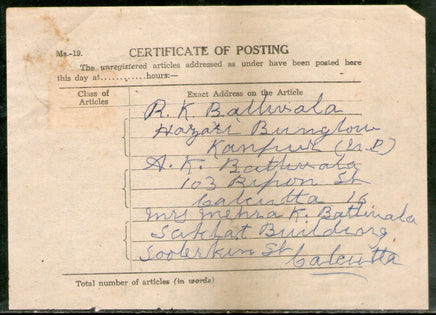 Ms.-19. CERTIFICATE OF POSTING
The unregistered articles addressed as under have been posted here
this day at............hours:—
Class of Articles
Exact Address on the Article
R. K. Batliwala
Hazari Bunglow
Kanpur (U.P)
A. K. Batliwala
103 Ripon St
Calcutta 16
Mrs Mehra K. Batliwala
Saklat Building
St
Calcutta
Total number of articles (in words)